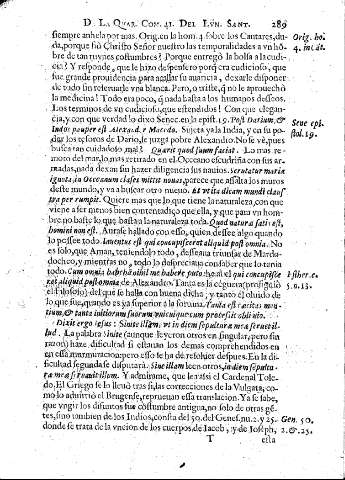 D. LA QUAR. CON. 41. DEL LVN. SANT. 289
siempre anhela por mas. Orig. en la hom. 4. sobre los Cantares, du-
da, porque fió Christo Señor nuestro las temporalidades a vn hõ-
bre de tan ruynes costumbres? Porque entregó la bolsa a la cudi-
cia? Y responde, que le hizo despensero por que era cudicioso, que
fue grande prouidencia para acallar su auaricia, dexarle disponer
de todo sin referuarle vna blanca. Pero, o triste, q̃ no le aprouechó
la medicina! Todo era poco, q̃ nada basta a los humanos desseos.
Los terminos de vn cudicioso, que estendidos! Con que elegan-
cia, y con que verdad lo dixo Senec. en la epist. 19. Post Darium, &
Indos pauper est Alexand. r Macedo. Sujeta ya la India, y en su po-
der los tesoros de Dario, le juzga pobre Alexandro. No se vè, que
busca tan cuidadoso mas? Quærit quod suum faciat. Lo mas re-
moto del mar, lo mas retirado en el Occeano escudriña con sus ar-
madas, nada dexan sin hazer diligencia sus nauios. Scrutatur maria
ignota, in Occeanum classes mittit nouas, parece que assalta los muros
deste mundo, y va a buscar otro nueuo. Et vt ita dicam mundi claus-
tra per rumpit. Quiere mas que lo que tiene la naturaleza, con que
viene a ser menos bien contentadiço que ella, y que para vn hom-
bre no baste lo que basta a la naturaleza toda. Quod natura satis est,
homini non est. Aurase hallado con esso, quien dessee algo quando
lo possee todo. Inuentus est qui concupisceret aliquid post omnia. No
es solo, que Aman, teniendolo todo, desseaua triumfar de Mardo-
docheo, y mientras no, todo lo despreciaua con saber que lo tenia
todo. Cum omnia habeam nihil me habere puto,
aliquid post omnia de Alexandro. Tanta es la ceguera (prosiguiò
el filosofo) del que se halla con buena dicha; y tanto el oluido de
lo que fue, quando es ya superior a la fortuna. Tanta est cæcitas men-
tium, & tanta initiorum suorum vnicuique cum processit obliuio.
Dixit ergo Iesus: Sinite illam, vt in diem sepulturæ meæ seruet il-
lud. La palabra Sinite (aunque leyeron otros en singular, pero sin
razon) haze dificultad si estauan los demas comprehendidos en
en essa murmuracion; pero esso se ha de resoluer despues. En la di-
ficultad segunda se disputarà. Sine illam leen otros, in diem sepultu-
ræ meæ seruauit illum. Y admirame, que le assi el Cardenal Tole-
do. El Griego se lo lleuò tras si, las correcciones de la Vulgata, co-
mo lo aduirtiò el Brugense, reprueuan essa translacion. Ya se sabe,
que vngir los difuntos fue costumbre antigua, no solo de otras gẽ-
tes, sino tambien de los Indios, consta del 50. del Genes. nu. 2. y 25.
donde se trata de la vncion de los cuerpos, de Iacob, y de Ioseph,
T esta
Orig. ho.
4. in cãt.
Sene epi-
stol. 19.
5. n. 13.
Gen. 50.
2. & 25.